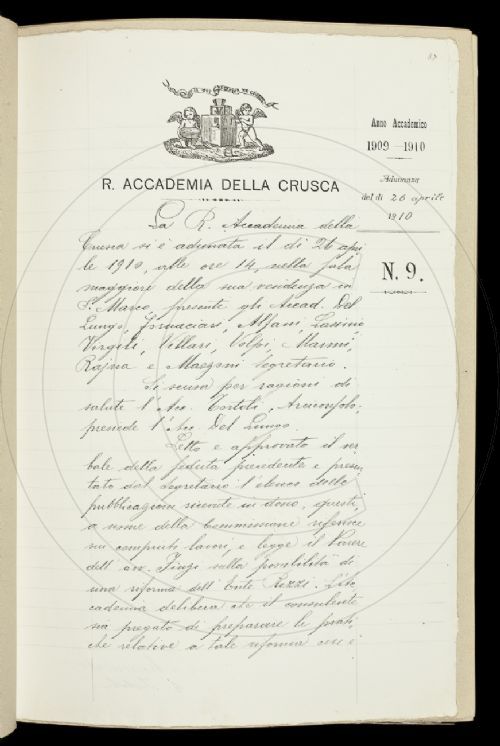 87
Anno Accademico
1909-1910
Adunanza
del dì 26 aprile
1910
N. 9.
R. ACCADEMIA DELLA CRUSCA
La R. Accademia della
Crusca si è adunata il dì 26 apri
le 1910, alle ore 14, nella sala
maggiore della sua residenza in
S. Marco, presenti gli Accad. Del
Lungo, Fornaciari, Alfani,
Virgili, Villari, Volpi,
Rajna e Mazzoni Segretario.
Si scusa per ragioni di
salute l'Acc. Tortoli, Arciconsolo,
presiede l'Acc. Del Lungo.
Letto e approvato il ver
bale della seduta precedente e presen
tato dal Segretario l'elenco delle
pubblicazioni ricevute in dono, questi,
a nome della Commissione riferisce
sui compiuti lavori, e legge il parere
dell'avv. sulla possibilità di
una riforma dell'Ente Rezzi. L'Ac
cademia delibera che il consulente
sia pregato di preparare le prati
che relative a tale riforma